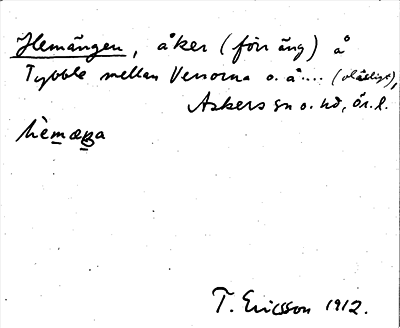 Hemängen, åker (förr äng) å
Tybble mellan Vesorna o. å.... (oläsligt),
Askers sn o. hd, ör. l.
hèmæŋa
T. Ericsson 1912.